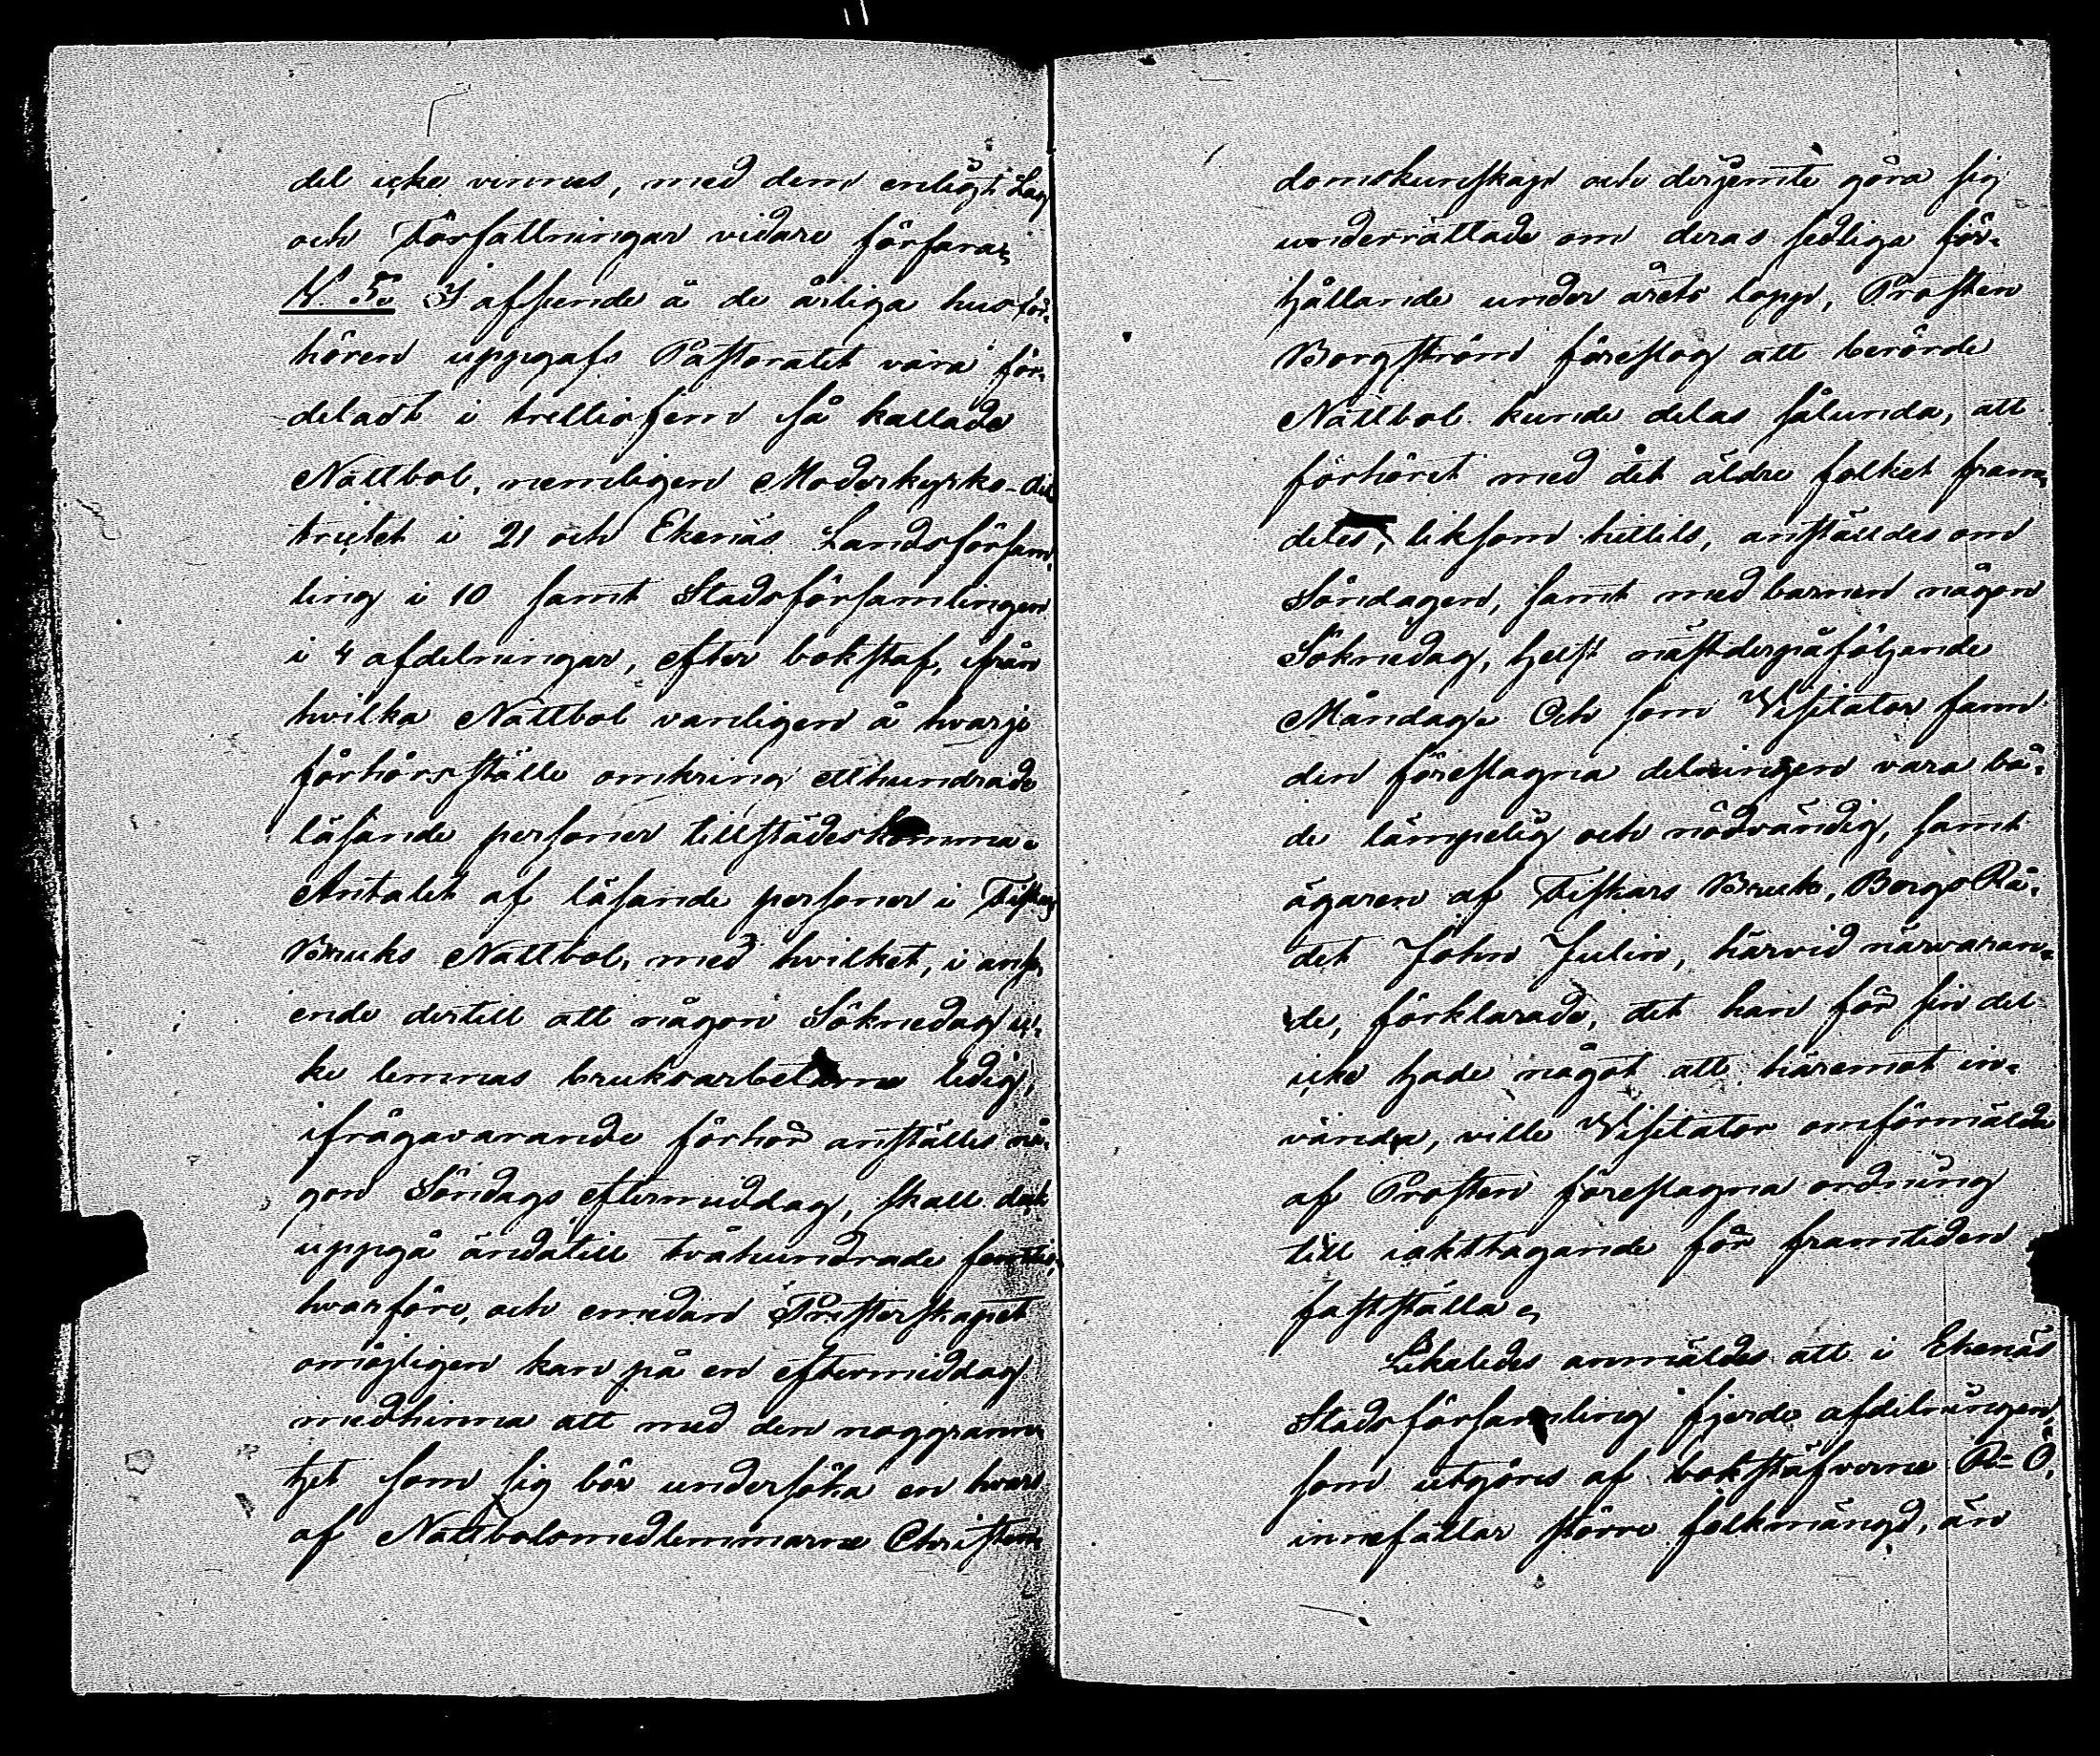 del icke vinnes, med dem enligt Lag
och Författningar vidare förfaras
§. 5. I afseende å de årliga husför-
hören uppgafs Pastoratet vara för-
deladt i trettiofem så kallade
Nattbol, nemligen Moderkyrko-dis
trictet i 21 och Ekenäs Landsförsam-
ling i 10 samt Stadsförsamlingen
i 4 afdelningar, efter bokstaf, ifrån
hvilka Nattbol vanligen å hvarje
förhörsställe omkring etthundrade
läsande personer tillstädeskomma.
Antalet af läsande personer i Fiskars
Bruks Nattbol, med hvilket, i anse-
ende dertill att någon Söknedag ic-
ke lemnas bruksarbetarne ledig,
ifrågavarande förhör anställes nå-
gon Söndags eftermiddag, skall dock
uppgå ändatill tvåhundrade femtio,
hvarföre, och emedan Presterskapet
omöjligen kan på en eftermiddag
medhinna att med den noggrann
het som sig bör undersöka en hvar
af Nattbolsmedlemmarne Christen
domskunskap och derjemte göra sig
underrättade om deras sedliga för-
hållande under årets lopp, Prosten
Borgström föreslog att berörde
Nattbol kunde delas sålunda, att
förhöret med det äldre folket fram-
deles, liksom hittils, anställdes om
Söndagen, samt med barnen någon
Söknedag, helst nästderpåföljande
Måndag. Och som Visitator fann
den föreslagna delningen vara bå-
de lämpelig och nödvändig, samt
ägaren af Fiskars Bruk, BergsRå-
det John Julin, härvid närvaran-
de, förklarade, det han för sin del
icke hade något att häremot in-
vända, ville Visitator omförmälde
af Prosten föreslagna ordning
till iakttagande för framtiden
fastställa.
Likaledes anmäldes att i Ekenäs
Stadsförsamling fjerde afdelningen,
som utgöres af bokstäfverne R-Ö,
innefattar större folkmängd, än